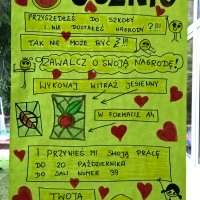 UCZNIU
PRZYSZEDŁEŚ DO SZKOŁY
I NIE DOSTAŁEŚ NAGRODY ?!!!
TAK NIE MOŻE BYĆ ?!!!
ZAWALCZ O SWOJĄ NAGRODĘ!
WYKONAJ WITRAŻ JESIENNY
W FORMACIE A4
I PRZYNIEŚ MI SWOJĄ PRACĘ
DO 20 PAŹDZIERNIKA
DO SALI NUMER 39
TWOJA